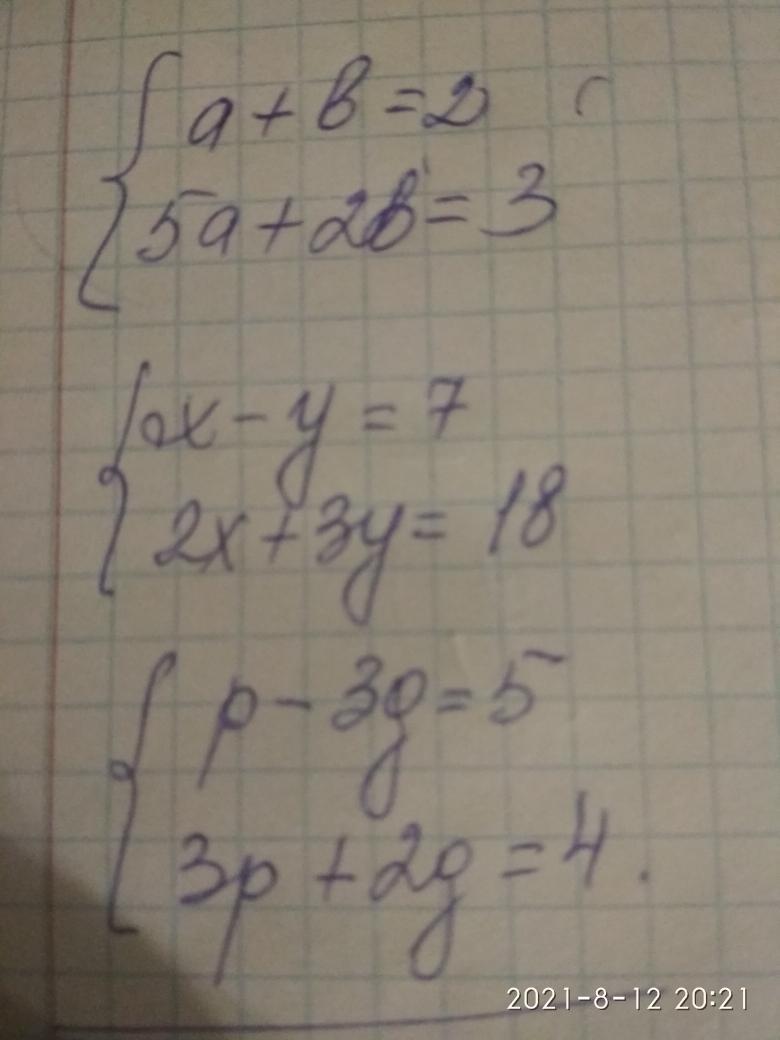 a + b = 2
5a + 2b = 3
x - y = 7
2x + 3y = 18
p - 3g = 5
3p + 2g = 4.
2021-8-12 20:21